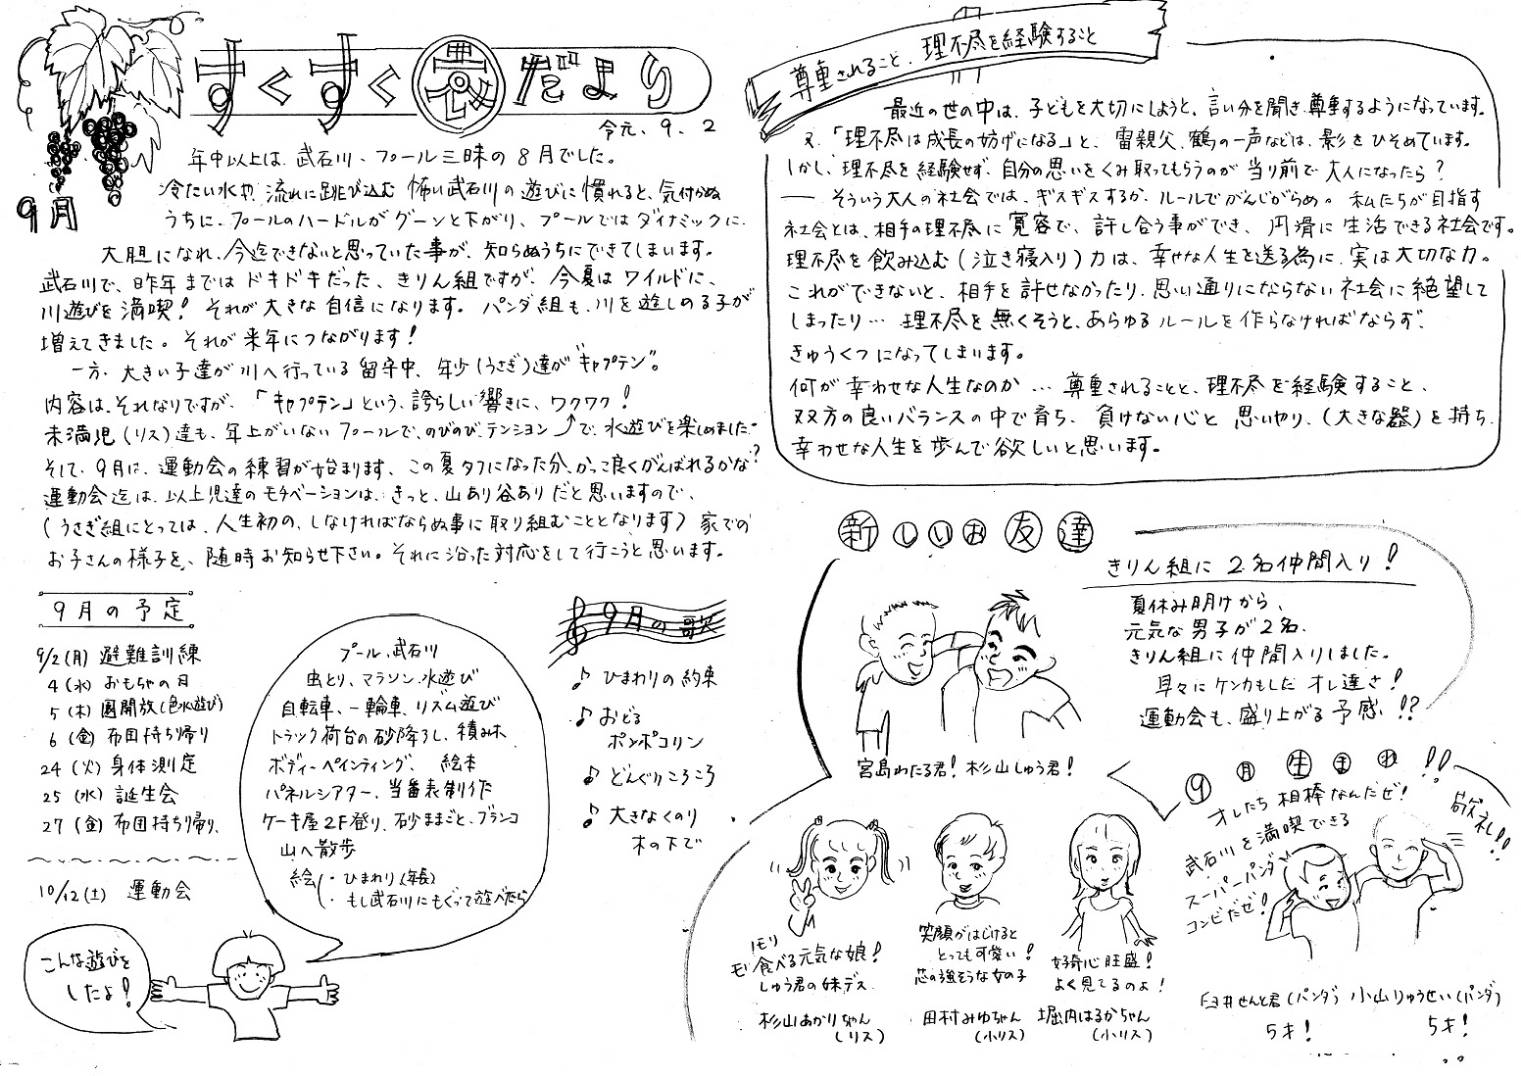 すくすく恵だより
令元、9、2
9月
年中以上は、武石川、プール三昧の8月でした。
冷たい水や、流れに跳び込む怖い武石川の遊びに慣れると、気付かぬ
うちに、プールのハードルがグーンと下がり、プールではダイナミックに、
大胆になれ、今迄できないと思っていた事が、知らぬうちにできてしまいます。
武石川で、昨年まではドキドキだった、きりん組ですが、今夏はワイルドに、
川遊びを満喫！それが大きな自信になります。パンダ組も、川を遊しめる子が
増えてきました。それが来年につながります！
一方、大きい子達が川へ行っている留守中、年少(うさぎ)達が“キャプテン”。
内容は、それなりですが、「キャプテン」という、誇らしい響きに、ワクワク！
未満児(リス)達も、年上がいないプールで、のびのび、テンション⤴で、水遊びを楽しめました。
そして、9月は、運動会の練習が始まります、この夏タフになった分、かっこ良くがんばれるかな？
運動会迄は、以上児達のモチベーションは、きっと、山あり谷ありだと思いますので、
(うさぎ組にとっては、人生初の、しなければならぬ事に取り組むこととなります)家での
お子さんの様子を、随時お知らせ下さい。それに沿った対応をして行こうと思います。
9月の予定
9/2(月) 避難訓練
4(水) おもちゃの日
5(木) 園開放(色水遊び)
6(金) 布団持ち帰り
24(火) 身体測定
25(水) 誕生会
27(金) 布団持ち帰り、
10/12(土) 運動会
こんな遊びを
したよ！
プール、武石川
虫とり、マラソン、水遊び
自転車、一輪車、リズム遊び
トラック荷台の砂降ろし、積み木
ボディーペインティング、絵本
パネルシアター、当番表制作
ケーキ屋2F登り、砂ままごと、ブランコ
山へ散歩
絵(・ひまわり(年長)
・もし武石川にもぐって遊べたら
9月の歌
♪ひまわりの約束
♪おどる
ポンポコリン
♪どんぐりころころ
♪大きなくりの
木の下で
尊重されること、理不尽を経験すること
最近の世の中は、子どもを大切にしようと、言い分を聞き、尊重するようになっています。
又、「理不尽は成長の妨げになる」と、雷親父、鶴の一声などは、影をひそめています。
しかし、理不尽を経験せず、自分の思いをくみ取ってもらうのが当り前で大人になったら？
── そういう大人の社会では、ギスギスするか、ルールでがんじがらめ。私たちが目指す
社会とは、相手の理不尽に寛容で、許し合う事ができ、円滑に生活できる社会です。
理不尽を飲み込む(泣き寝入り)力は、幸せな人生を送る為に、実は大切な力。
これができないと、相手を許せなかったり、思い通りにならない社会に絶望して
しまったり…理不尽を無くそうと、あらゆるルールを作らなければならず、
きゅうくつになってしまいます。
何が幸わせな人生なのか…尊重されることと、理不尽を経験すること、
双方の良いバランスの中で育ち、負けない心と思いやり、(大きな器)を持ち、
幸わせな人生を歩んで欲しいと思います。
新しいお友達
きりん組に2名仲間入り！
夏休み明けから、
元気な男子が2名、
きりん組に仲間入りしました。
早々にケンカもしたオレ達さ！
運動会も、盛り上がる予感！？
宮島わたる君！杉山しゅう君！
9月生まれ!!
オレたち相棒なんだゼ！
武石川を満喫できる
スーパーパンダ
コンビだぜ！
敬礼!!
モリモリ食べる元気な娘！
しゅう君の妹デス
杉山あかりちゃん
(リス)
笑顔がはじけると
とっても可愛い！
芯の強そうな女の子
田村みゆちゃん
(小リス)
好奇心旺盛！
よく見てるのよ！
堀内はるかちゃん
(小リス)
臼井せんと君(パンダ)
5才！
小山りゅうせい(パンダ)
5才！